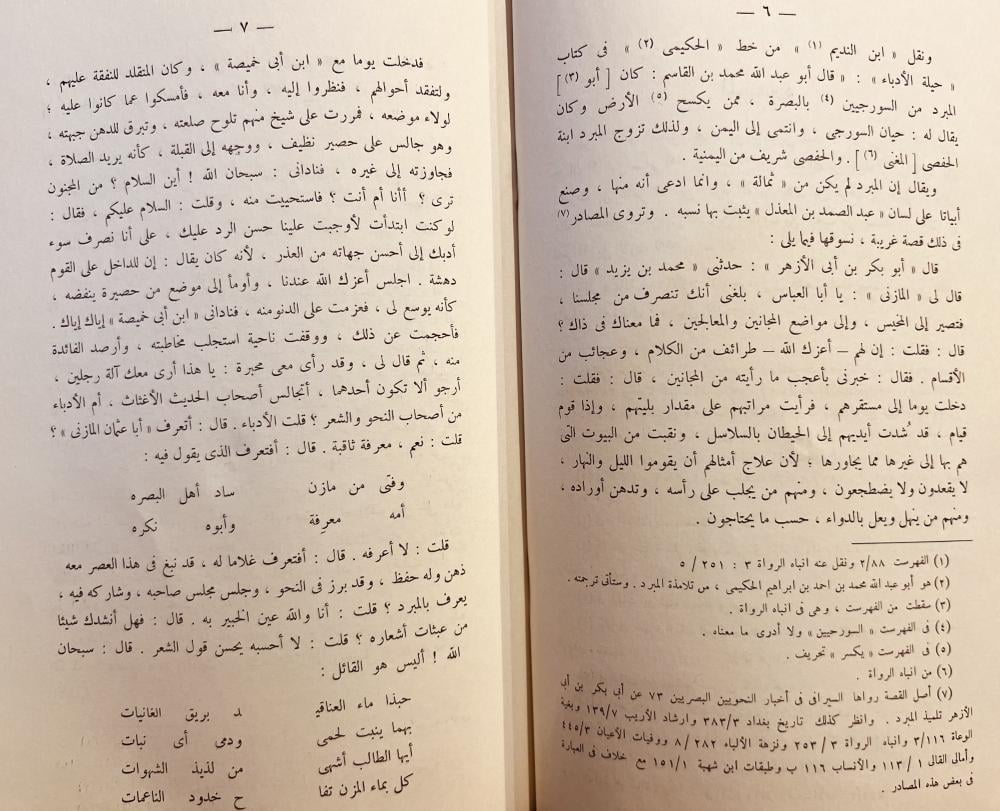 — ٦ —
ونقل « ابن النديم (١) » من خط « الحكيمى (٢) » فى كتاب
« حيلة الأدباء » : « قال أبو عبد الله محمد بن القاسم : كان [ أبو (٣) ]
المبرد من السورجيين (٤) بالبصرة ، ممن يكسح (٥) الأرض وكان
يقال له : حيان السورجى ، وانتمى إلى اليمن ، ولذلك تزوج المبرد ابنة
الحفصى [ المغنى (٦) ] . والحفصى شريف من اليمنية .
ويقال إن المبرد لم يكن من « ثمالة » ، وانما ادعى أنه منها ، وصنع
أبياتا على لسان « عبد الصمد بن المعذل » يثبت بها نسبه . وتروى المصادر (٧)
فى ذلك قصة غريبة ، نسوقها فيما يلى :
قال « أبو بكر بن أبى الأزهر » : حدثنى « محمد بن يزيد » قال :
قال لى « المازنى » : يا أبا العباس ، بلغنى أنك تنصرف من مجلسنا ،
فتصير إلى المخيس ، وإلى مواضع المجانين والمعالجين ، فما معناك فى ذاك ؟
قال : فقلت : إن لهم — أعزك الله — طرائف من الكلام ، وعجائب من
الأقسام . فقال : خبرنى بأعجب ما رأيته من المجانين ، قال : فقلت :
دخلت يوما إلى مستقرهم ، فرأيت مراتبهم على مقدار بليتهم ، وإذا قوم
قيام ، قد شُدت أيديهم إلى الحيطان بالسلاسل ، ونقبت من البيوت التى
هم بها إلى غيرها مما يجاورها ؛ لأن علاج أمثالهم أن يقوموا الليل والنهار ،
لا يقعدون ولا يضطجعون ، ومنهم من يجلب على رأسه ، وتدهن أوراده ،
ومنهم من ينهل ويعل بالدواء ، حسب ما يحتاجون .
(١) الفهرست ٢/٨٨ ونقل عنه انباه الرواة ٣ : ٢٥١ / ٥
(٢) هو أبو عبد الله محمد بن احمد بن ابراهيم الحكيمى ، من تلامذة المبرد . وستأتى ترجمته .
(٣) سقطت من الفهرست ، وهى فى انباه الرواة .
(٤) فى الفهرست « السورحيين » ولا أدرى ما معناه .
(٥) فى الفهرست « يكسر » تحريف .
(٦) من انباه الرواة .
(٧) أصل القصة رواها السيرافى فى أخبار النحويين البصريين ٧٣ عن أبى بكر بن أبى
الأزهر تلميذ المبرد . وانظر كذلك تاريخ بغداد ٣٨٣/٣ وارشاد الأريب ١٣٩/٧ وبغية
الوعاة ٣/١١٦ وانباه الرواة ٣ / ٢٥٣ ونزهة الألباء ٢٨٢ / ٨ ووفيات الأعيان ٤٤٥/٣
وأمالى القالى ١ / ١١٣ والأنساب ١١٦ ب وطبقات ابن شهبة ١٥١/١ مع خلاف فى العبارة
فى بعض هذه المصادر .
— ٧ —
فدخلت يوما مع « ابن أبى خميصة » ، وكان المتقلد للنفقة عليهم ،
ولتفقد أحوالهم ، فنظروا إليه ، وأنا معه ، فأمسكوا عما كانوا عليه ؛
لولاء موضعه ، فمررت على شيخ منهم تلوح صلعته ، وتبرق للدهن جبهته ،
وهو جالس على حصير نظيف ، ووجهه إلى القبلة ، كأنه يريد الصلاة ،
فجاوزته إلى غيره ، فنادانى : سبحان الله ! أين السلام ؟ من المجنون
ترى ؟ أأنا أم أنت ؟ فاستحييت منه ، وقلت : السلام عليكم ، فقال :
لو كنت ابتدأت لأوجبت علينا حسن الرد عليك ، على أنا نصرف سوء
أدبك إلى أحسن جهاته من العذر ، لأنه كان يقال : إن للداخل على القوم
دهشة . اجلس أعزك الله عندنا ، وأومأ إلى موضع من حصيرة ينفضه ،
كأنه يوسع لى ، فعزمت على الدنو منه ، فنادانى « ابن أبى خميصة » إياك إياك .
فأحجمت عن ذلك ، ووقفت ناحية استجلب مخاطبته ، وأرصد الفائدة
منه ، ثم قال لى ، وقد رأى معى محبرة : يا هذا أرى معك آلة رجلين ،
أرجو ألا تكون أحدهما ، أتجالس أصحاب الحديث الأغثاث . أم الأدباء
من أصحاب النحو والشعر ؟ قلت الأدباء . قال : أتعرف « أبا عثمان المازنى » ؟
قلت : نعم ، معرفة ثاقبة . قال : أفتعرف الذى يقول فيه :
وفتى من مازن ساد أهل البصره
أمه معرفة وأبوه نكره
قلت : لا أعرفه . قال : أفتعرف غلاما له ، قد نبغ فى هذا العصر معه
ذهن وله حفظ ، وقد برز فى النحو ، وجلس مجلس صاحبه ، وشاركه فيه ،
يعرف بالمبرد ؟ قلت : أنا والله عين الخبير به . قال : فهل أنشدك شيئا
من عبثات أشعاره ؟ قلت : لا أحسبه يحسن قول الشعر . قال : سبحان
الله ! أليس هو القائل :
حبذا ماء العناقيـ د بريق الغانيات
بهما ينبت لحمى ودمى أى نبات
أيها الطالب أشهى من لذيذ الشهوات
كل بماء المزن تفا ح خدود الناعمات